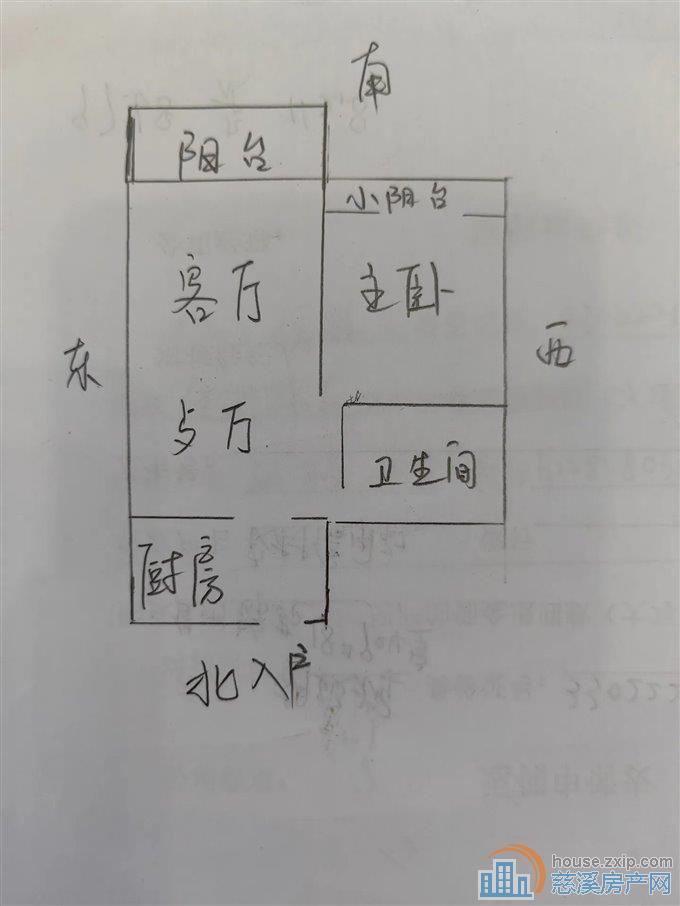 南
阳台
小阳台
客厅
主卧
东
西
歺厅
卫生间
厨房
北入户
house.zxip.com
慈溪房产网